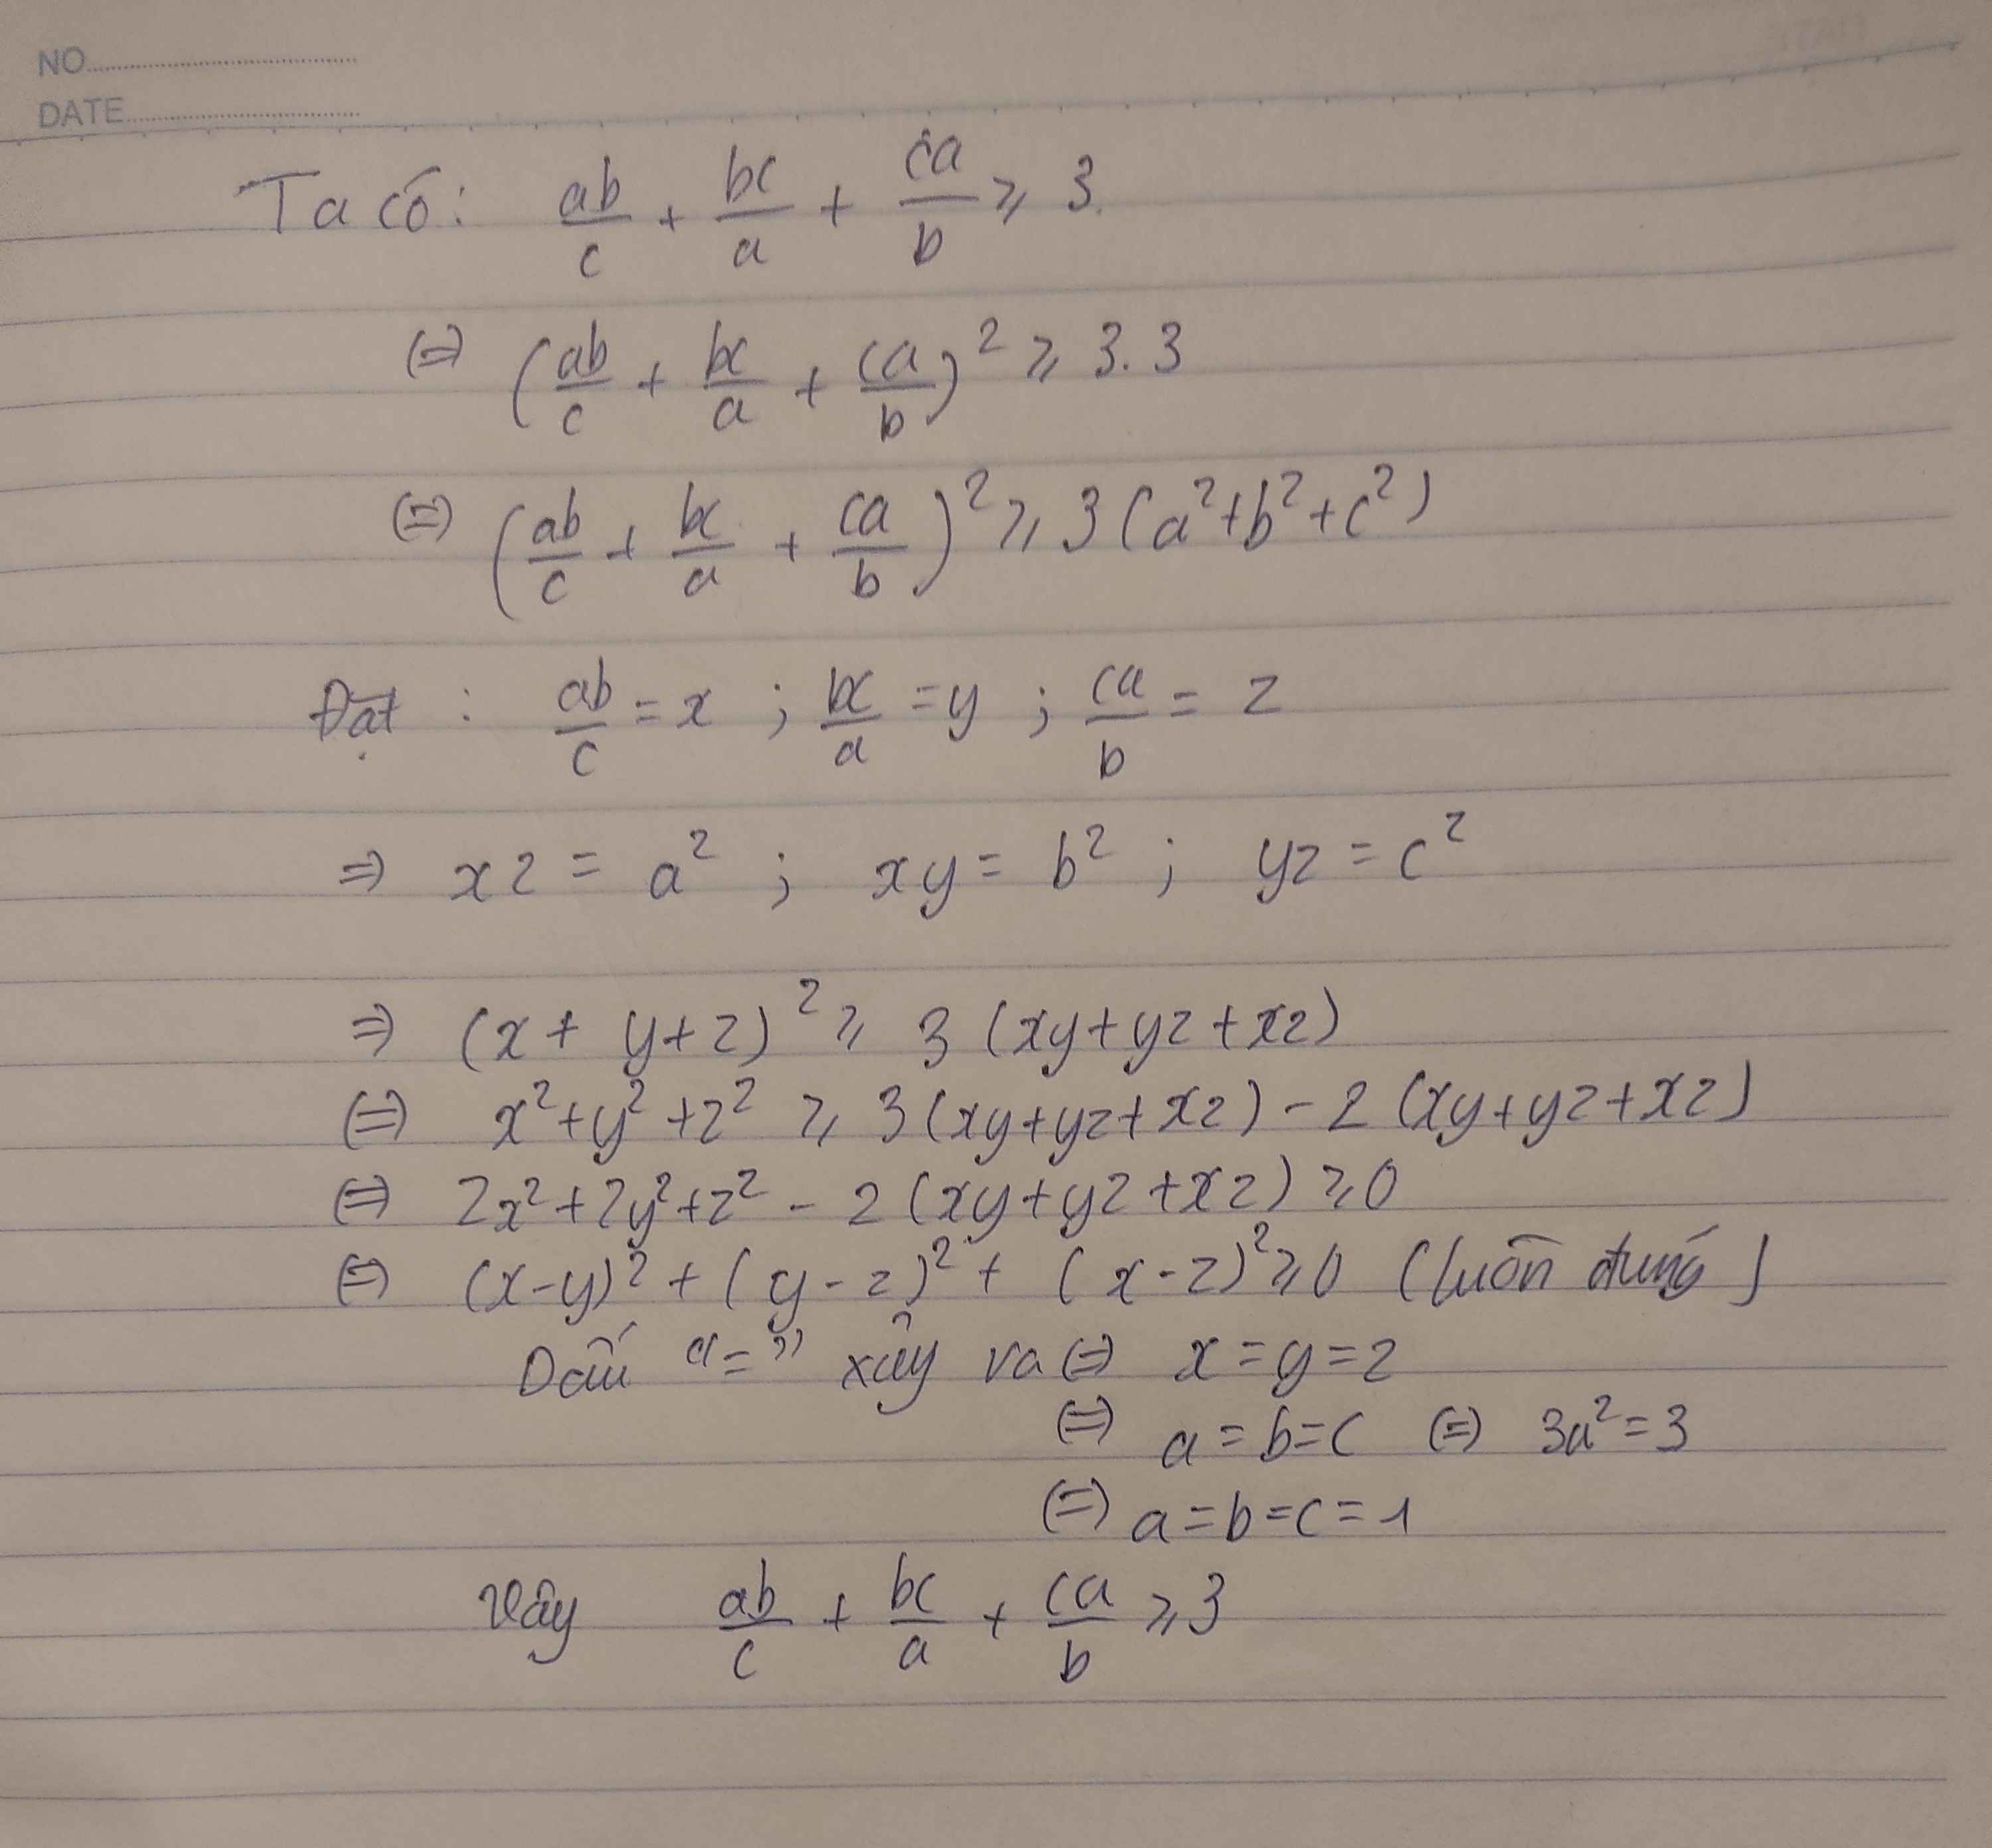 NO
DATE
Ta có: ab/c + bc/a + ca/b ⩾ 3
(=) (ab/c + bc/a + ca/b)² ⩾ 3.3
(=) (ab/c + bc/a + ca/b)² ⩾ 3(a²+b²+c²)
Đặt : ab/c = x ; bc/a = y ; ca/b = z
=) xz = a² ; xy = b² ; yz = c²
=) (x + y+z)² ⩾ 3 (xy+yz+xz)
(=) x²+y²+z² ⩾ 3(xy+yz+xz) - 2 (xy+yz+xz)
(=) 2x²+2y²+z² - 2 (xy+yz+xz) ⩾ 0
(=) (x-y)² + (y-z)² + (x-z)² ⩾ 0 (luôn đúng)
Dấu "=" xảy ra (=) x=y=z
(=) a=b=c (=) 3a²=3
(=) a=b=c=1
Vậy ab/c + bc/a + ca/b ⩾ 3